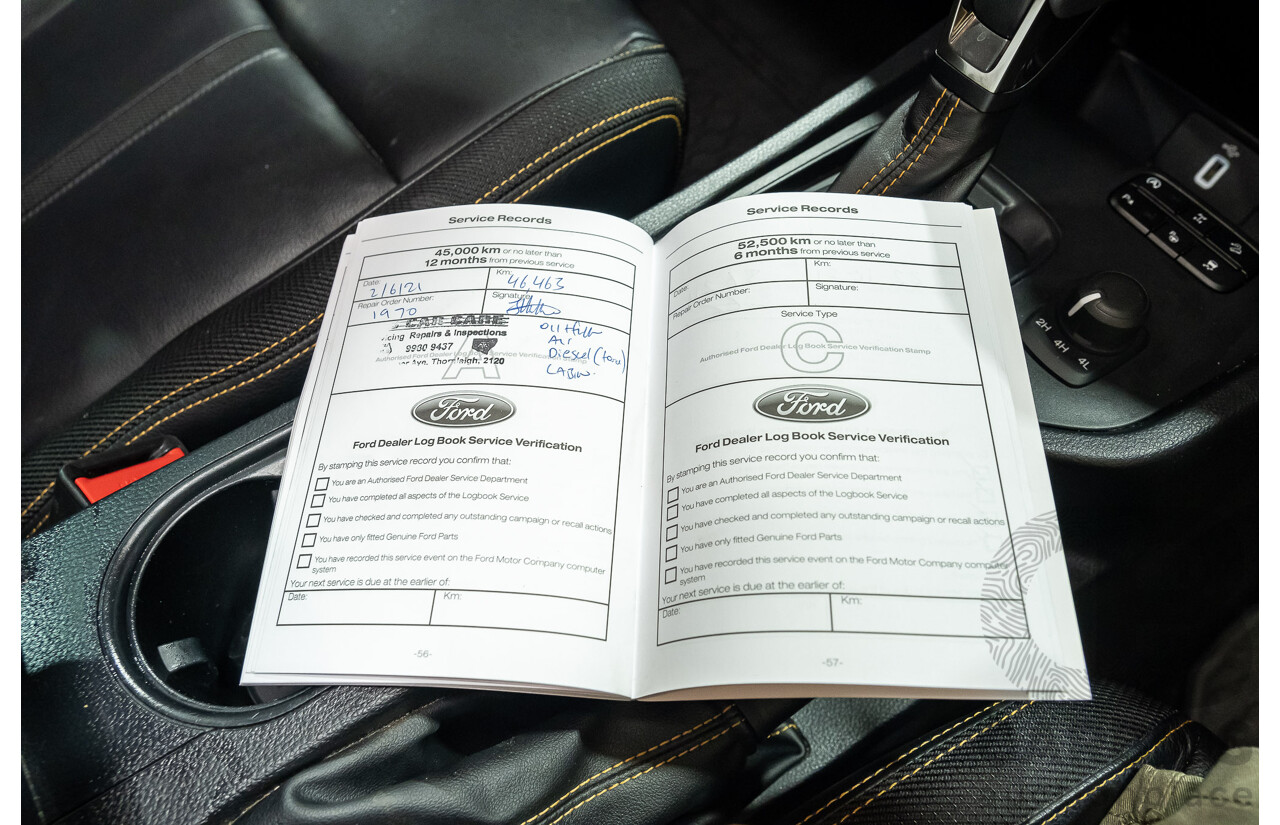 Service Records
45,000 km or no later than
12 months from previous service
Date: 2/6/21
Km: 46,463
Repair Order Number: 1970
Signature:
CAR CARE
cing Repairs & Inspections
9980 9437
Thornleigh, 2120
Oil + filter
Air
Diesel (
Cabin.
Authorised Ford Dealer Log Book Service Verification Stamp
A
Ford
Ford Dealer Log Book Service Verification
By stamping this service record you confirm that:
You are an Authorised Ford Dealer Service Department
You have completed all aspects of the Logbook Service
You have checked and completed any outstanding campaign or recall actions
You have only fitted Genuine Ford Parts
You have recorded this service event on the Ford Motor Company computer
system
Your next service is due at the earlier of:
Date:
Km:
-56-
Service Records
52,500 km or no later than
6 months from previous service
Date:
Km:
Repair Order Number:
Signature:
Service Type
C
Authorised Ford Dealer Log Book Service Verification Stamp
Ford
Ford Dealer Log Book Service Verification
By stamping this service record you confirm that:
You are an Authorised Ford Dealer Service Department
You have completed all aspects of the Logbook Service
You have checked and completed any outstanding campaign or recall actions
You have only fitted Genuine Ford Parts
You have recorded this service event on the Ford Motor Company computer
system
Your next service is due at the earlier of:
Date:
Km:
-57-
2H
4H
4L